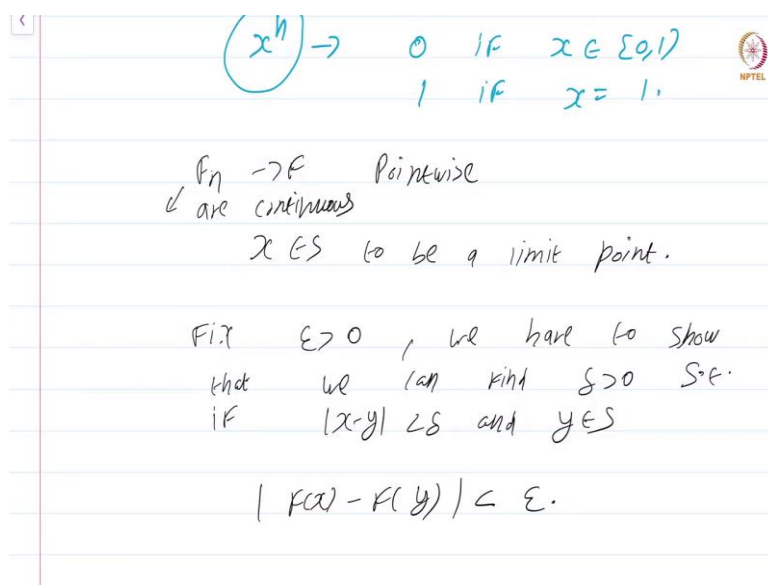 xⁿ → 0 if x ∈ [0,1)
1 if x = 1.
NPTEL
Fn → F Pointwise
are continuous
x ∈ S to be a limit point.
Fix ε > 0, we have to show
that we can find δ > 0 s.t.
if |x-y| < δ and y ∈ S
| F(x) - F(y) | < ε.